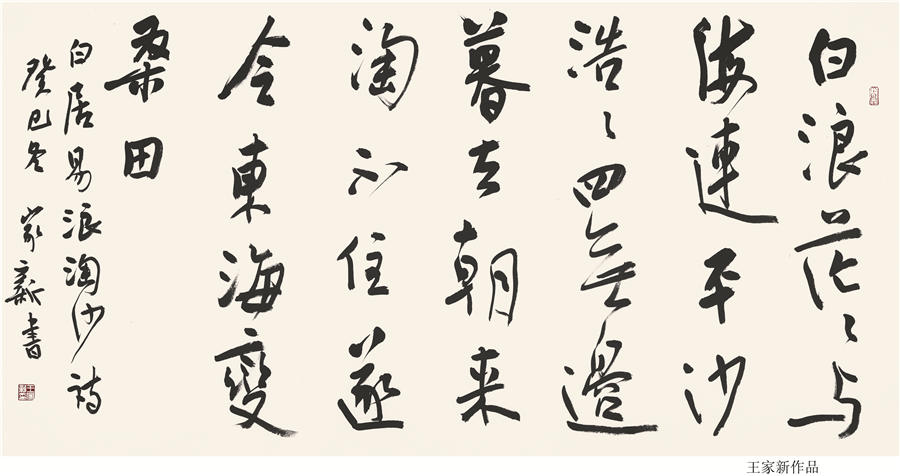 白浪茫々与
海連平沙
浩々四無邊
暮去朝来
淘不住遂
令東海變
桑田
白居易浪淘沙詩
癸巳冬 家新書
王家新作品